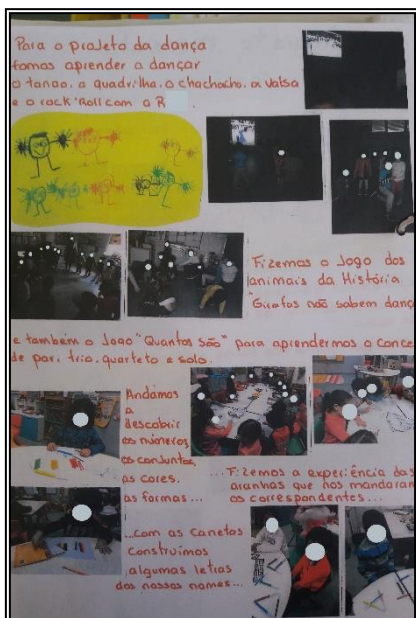 Para o projeto da dança
fomos aprender a dançar
o tango, a quadrilha, o chachacha, a valsa
e o rock'Roll com a R
Fizemos o Jogo dos
animais da História
"Girafas não sabem dança
e também o Jogo "Quantos São" para aprendermos o conce
de par, trio, quarteto e solo.
Andámos
a
descobrir
os números,
os conjuntos,
as cores,
as formas...
...Fizemos a experiência das
aranhas que nos mandaram
os correspondentes...
...com as canetas
construimos
algumas letras
dos nossos nomes...